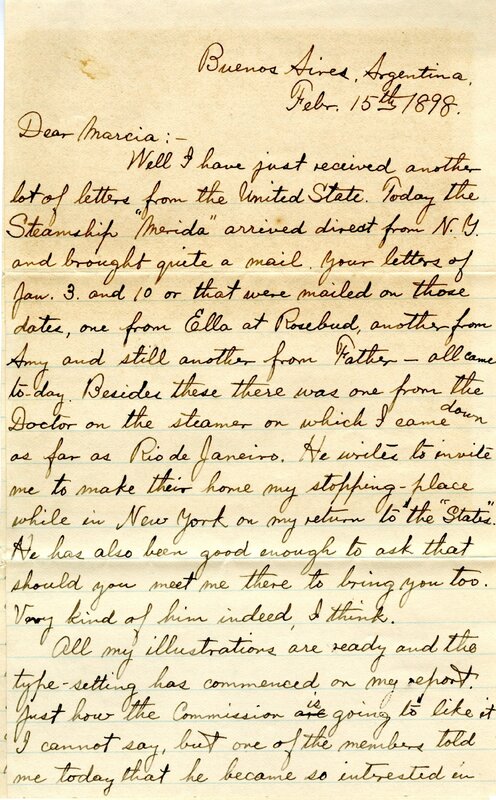 Buenos Aires, Argentina,
Febr. 15th 1898.
Dear Marcia:-
Well I have just received another
lot of letters from the United State. Today the
Steamship "Merida" arrived direct from N.Y.
and brought quite a mail. Your letters of
Jan. 3. and 10 or that were mailed on those
dates, one from Ella at Rosebud, another from
Amy and still another from Father — all came
to-day. Besides these there was one from the
Doctor on the steamer on which I came down
as far as Rio de Janeiro. He writes to invite
me to make their home my stopping-place
while in New York on my return to the "States".
He has also been good enough to ask that
should you meet me there to bring you too.
Very kind of him indeed, I think.
All my illustrations are ready and the
type-setting has commenced on my report.
Just how the Commission is going to like it
I cannot say, but one of the members told
me today that he became so interested in